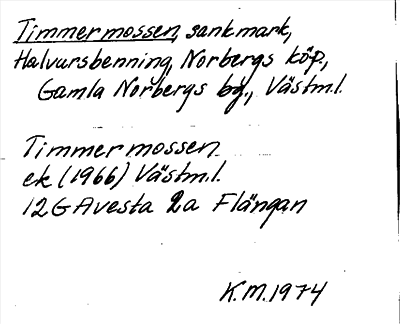 Timmermossen, sankmark,
Halvarsbenning, Norbergs köp.,
Gamla Norbergs bg., Västm.l.
Timmermossen
ek (1966) Västm.l.
12G Avesta 2a Flängan
K.M. 1974